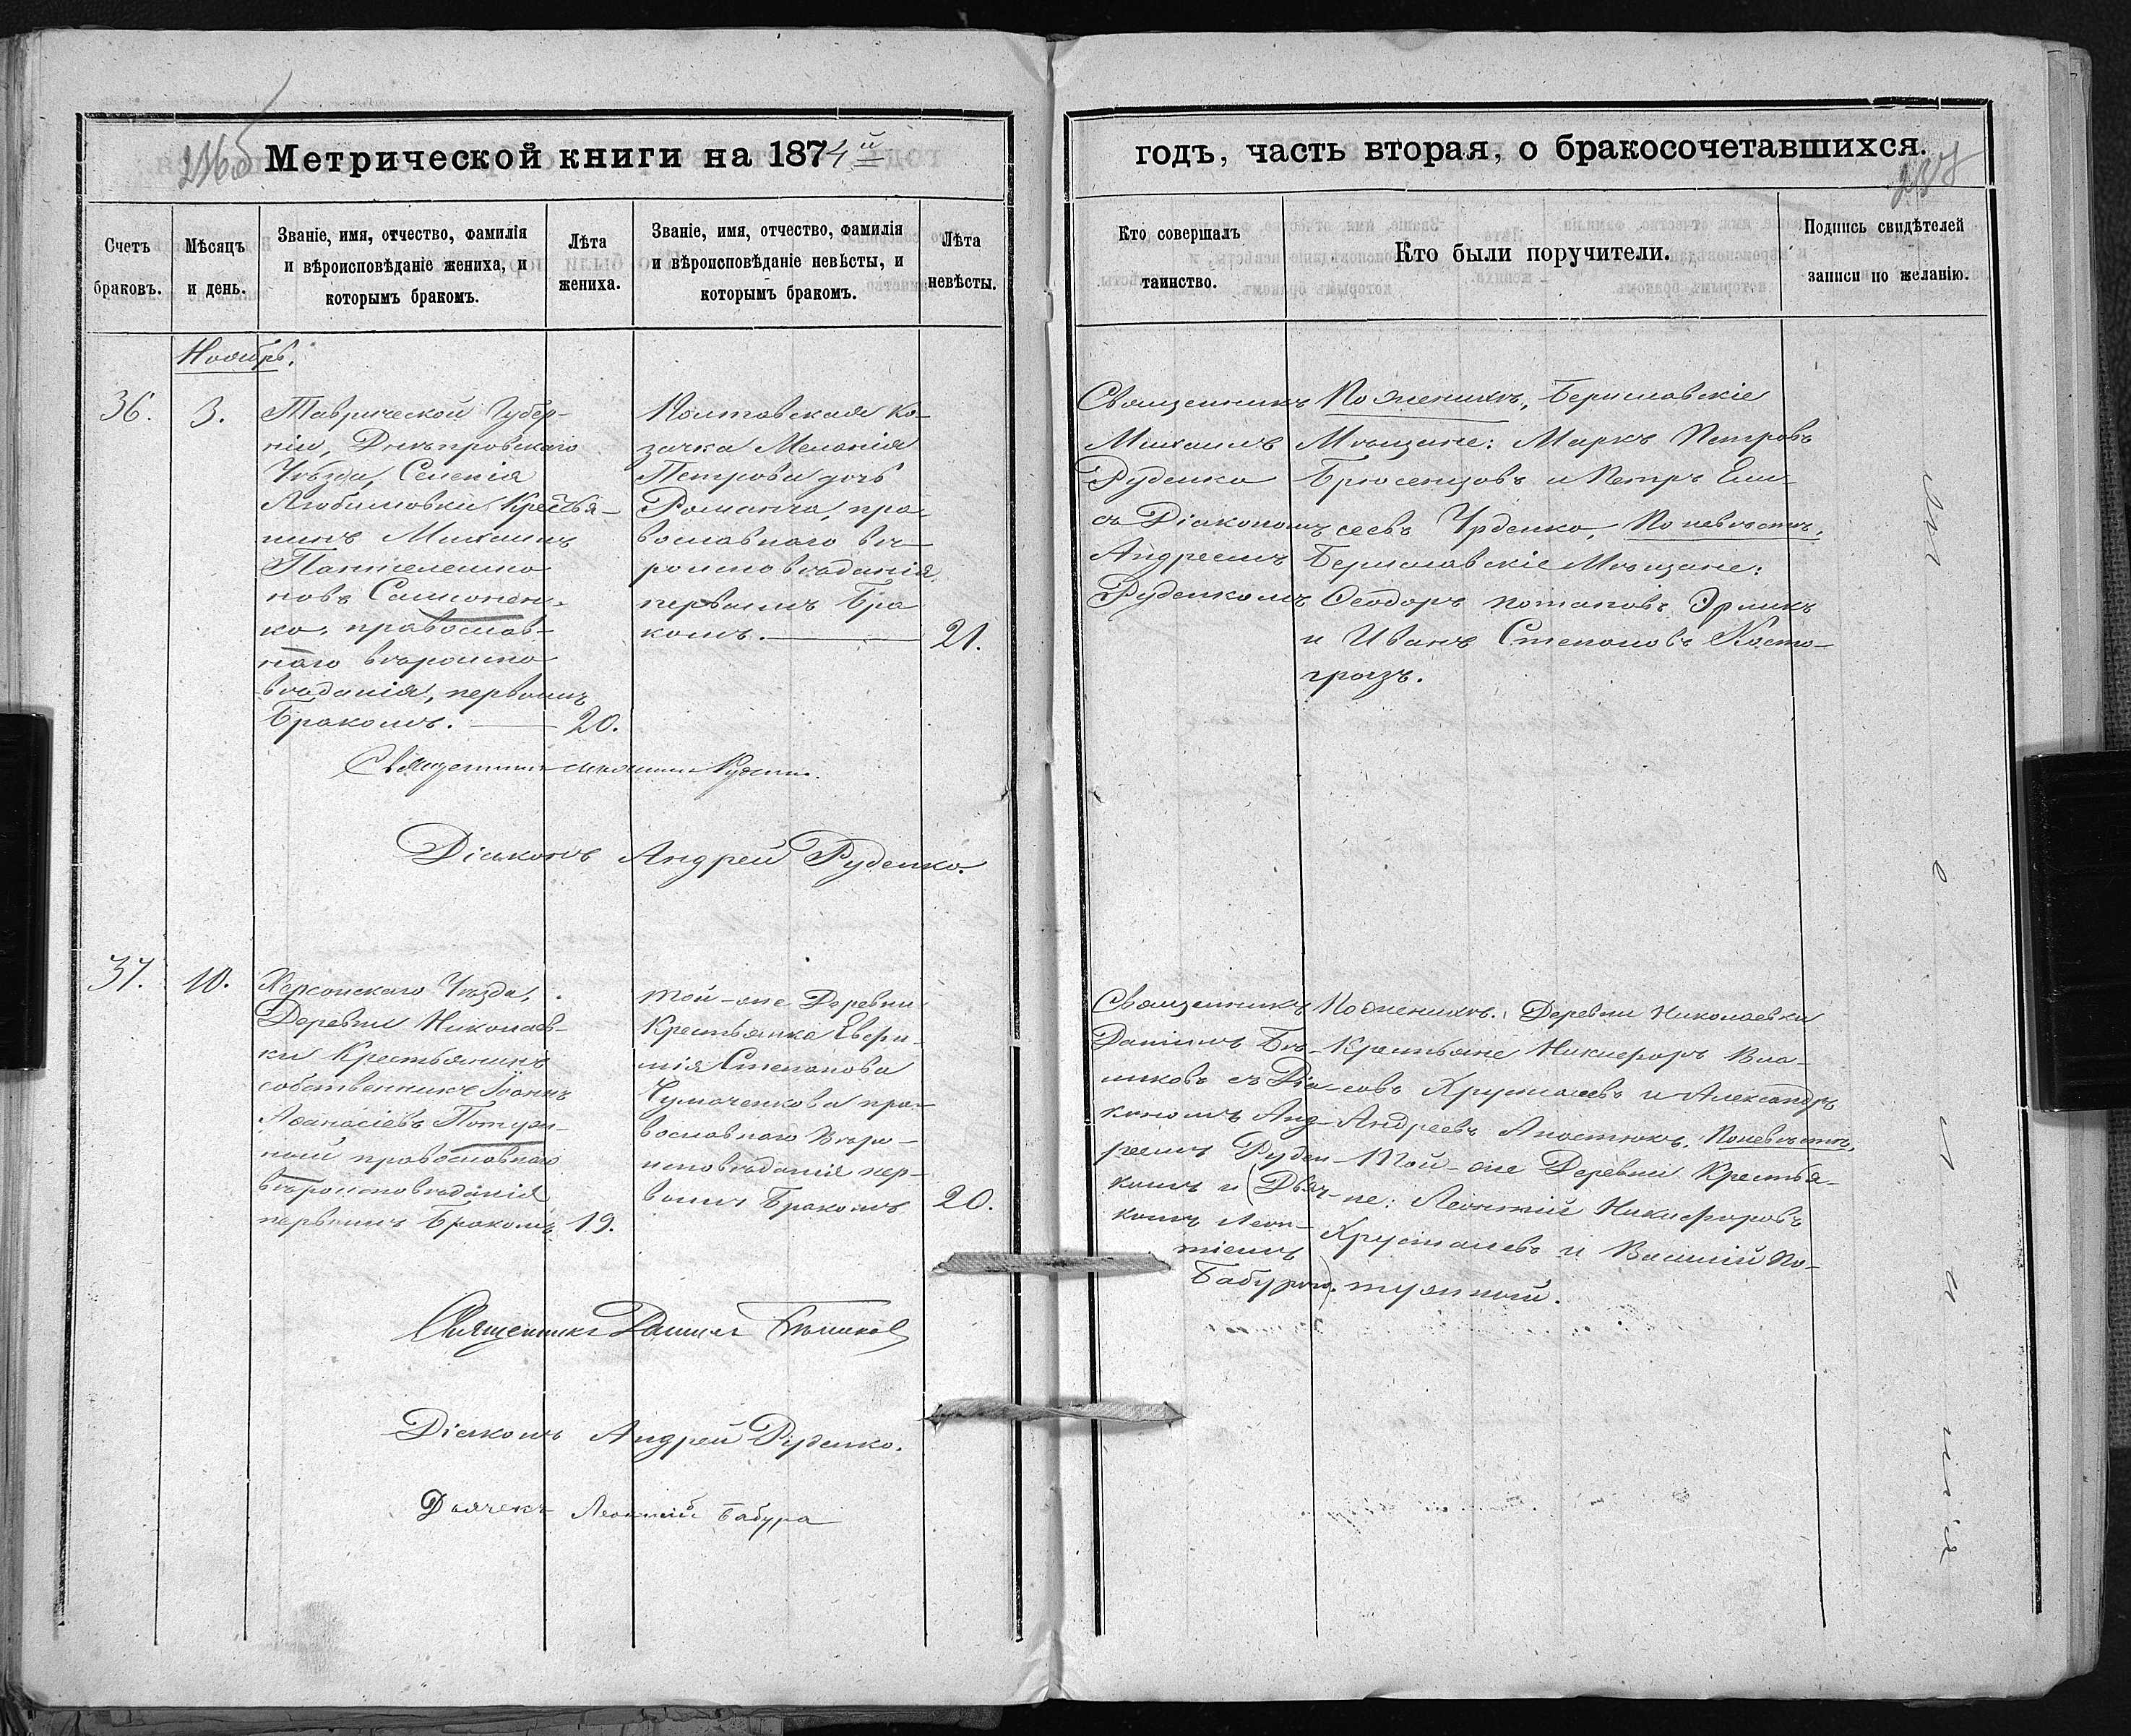 236б
Метрической книги на 1874й
годъ, часть вторая, о бракосочетавшихся.
237
Счетъ браковъ.
Мѣсяцъ и день.
Званіе, имя, отчество, фамилія
и вѣроисповѣданіе жениха, и
которымъ бракомъ.
Лѣта
жениха.
Званіе, имя, отчество, фамилія
и вѣроисповѣданіе невѣсты, и
которымъ бракомъ.
Лѣта
невѣсты.
Кто совершалъ
таинство.
Кто были поручители.
Подпись свидѣтелей
записи по желанію.
Ноябрь.
36.
3.
Таврической Губер-
ніи, Днѣпровскаго
Уѣзда, Селенія
Любимовки, Кресьтья-
нинъ Михаилъ
Пантелеимо
новъ Самонен-
ко, православ-
наго вѣроиспо
вѣданія, первымъ
Бракомъ. 20.
Полтовская Ко-
зачка Меланія
Петрова дочь
Романча, пра-
вославнаго вѣ-
роисповѣданія,
первымъ Бра
комъ. 21.
Священникъ
Михаилъ
Руденко
съ Діакономъ
Андреемъ
Руденкомъ
По женихѣ, Бериславскіе
Мѣщане: Маркъ Петровъ
Брюсенцовъ и Петръ Ели-
сеевъ Урденко, По невѣстѣ,
Бериславскіе Мѣщане:
Ѳеодоръ Потаповъ Эрликъ
и Иванъ Степановъ Косто-
грызъ.
Священникъ Михаилъ Руденко.
Діаконъ Андрей Руденко.
37.
10.
Херсонскаго Уѣзда,
Деревни Николаев-
ки Крестьянинъ
собственникъ Іоаннъ
Аѳанасіевъ Потуж-
ный православнаго
вѣроисповѣданія
первымъ Бракомъ 19.
той-же Деревни
Крестьянка Евфи-
мія Степанова
Чумаченкова пра-
вославнаго Вѣро-
исповѣданія пер-
вымъ Бракомъ 20.
Священникъ
Даніилъ Бѣ-
ликовъ съ Діа-
кономъ Анд-
реемъ Руден-
комъ и (Дьяч-
комъ Леон-
тіемъ
Бабурою).
По женихѣ: Деревни Николаевки
Крестьяне Никифоръ Вла-
совъ Хрусталевъ и Александръ
Андреевъ Апостюкъ. По невѣстѣ,
Той-же Деревни Крестья-
не: Леонтій Никифоровъ
Хрусталевъ и Василій По-
тужный.
Священникъ Даніилъ Бѣликовъ
Діаконъ Андрей Руденко.
Дьячекъ Леонтій Бабура